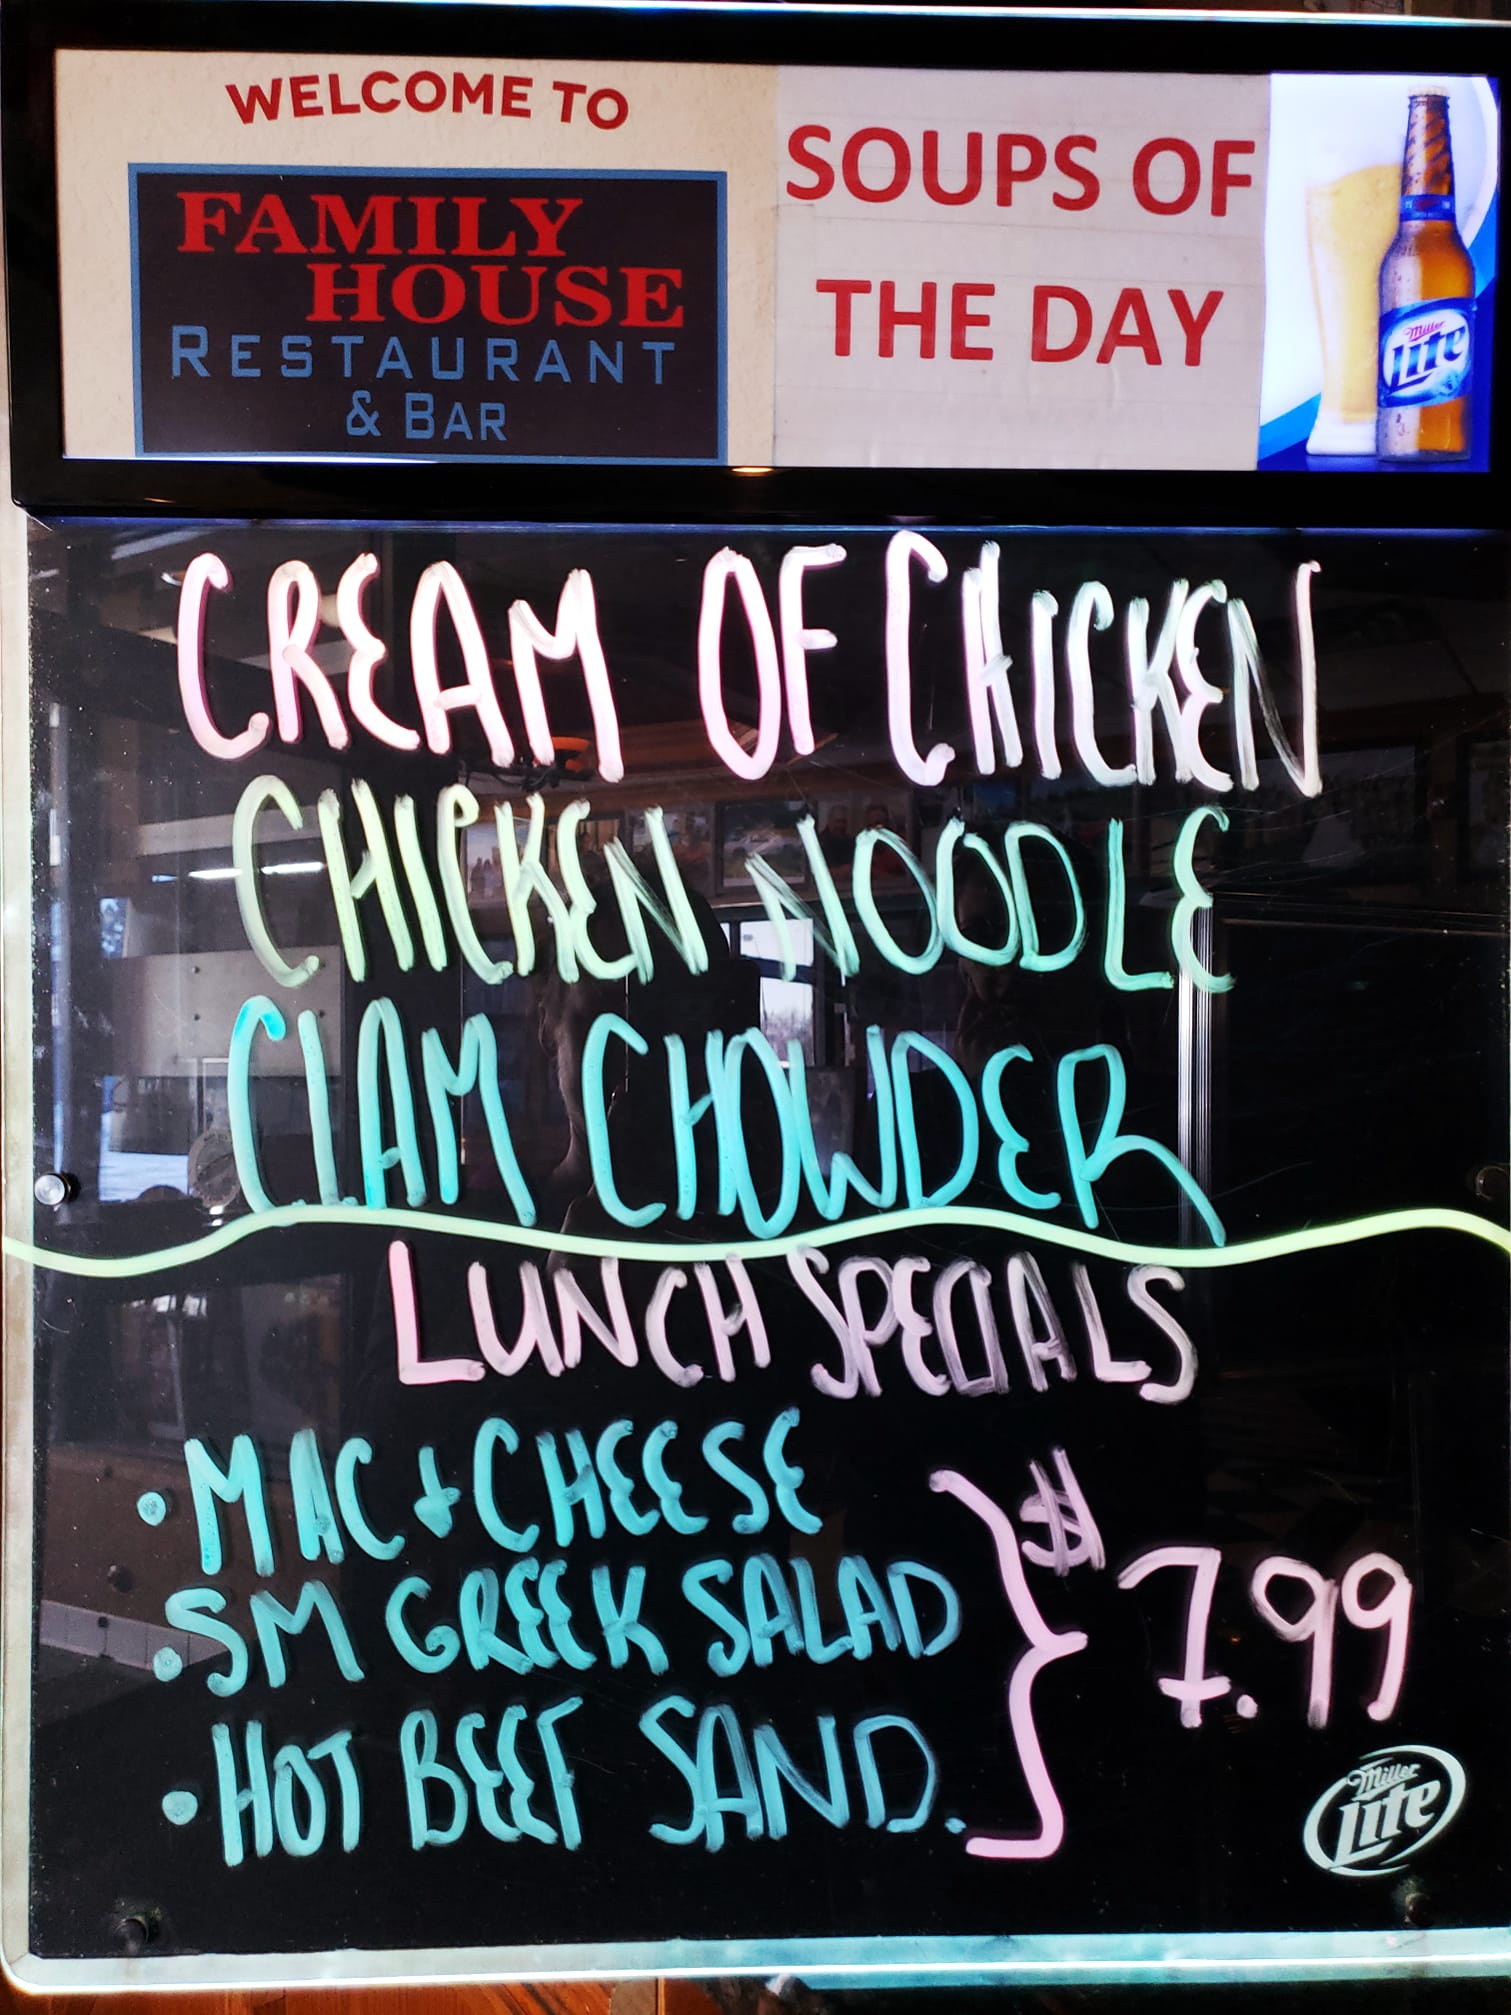 WELCOME TO
FAMILY
HOUSE
RESTAURANT
& BAR
SOUPS OF
THE DAY
Miller
Lite
CREAM OF CHICKEN
CHICKEN NOODLE
CLAM CHOWDER
LUNCH SPECIALS
• MAC + CHEESE
• SM GREEK SALAD
• HOT BEEF SAND.
$7.99
Miller
Lite